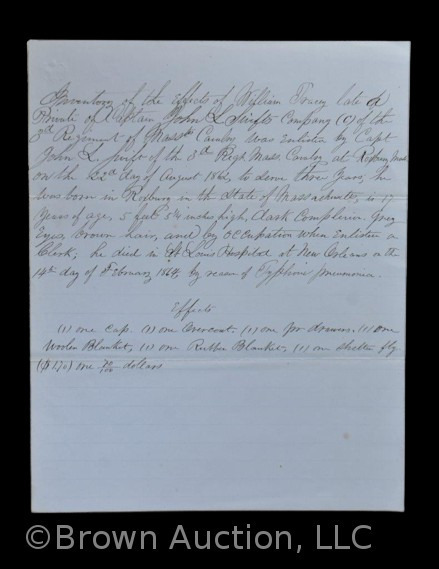 Inventory of the Effects of William Tracy late a
Private of Captain John L Swifts Company (C) of the
3d Regiment of Massts Cavalry was enlisted by Capt
John L. Swift of the 3d Regt Mass. Cavalry at Roxbury Mass
on the 22nd day of August 1862, to serve three years, he
was born in Roxbury in the State of Massachusetts, is 17
Years of age, 5 feet 5¼ inches high, dark Complexion. Grey
Eyes, brown hair, and by Occupation When Enlisted a
Clerk; he died in St Louis Hospital at New Orleans on the
14th day of February 1864, by reason of Typhoid pneumonia.
Effects
(1) one Cap. (1) one Overcoat. (1) one pr drawers. (1) one
Woolen Blanket, (1) one Rubber Blanket, (1) one shelter fly.
($1.70) one 70/100 dollars
©Brown Auction, LLC